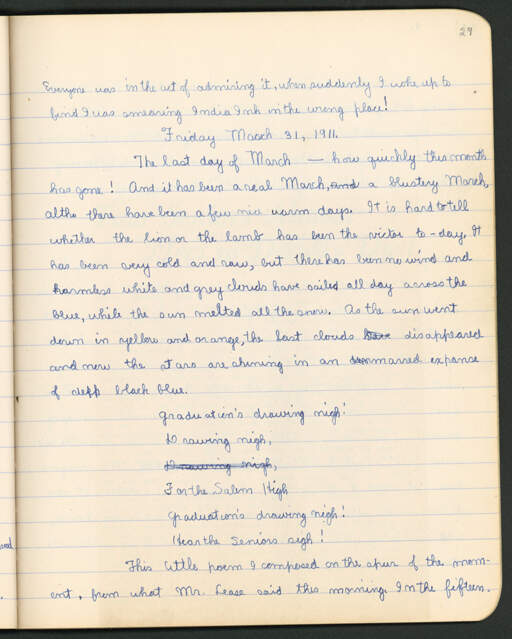 29
Everyone was in the act of admiring it, when suddenly I woke up to
find I was smearing India Ink in the wrong place!
Friday March 31, 1911.
The last day of March — how quickly this month
has gone! And it has been a real March, and a blustery March,
altho there have been a few nice warm days. It is hard to tell
whether the lion or the lamb has been the victor to-day. It
has been very cold and raw, but there has been no wind and
harmless white and grey clouds have sailed all day across the
blue, while the sun melted all the snow. As the sun went
down in yellow and orange, the last clouds have disappeared
and now the stars are shining in an unmarred expanse
of deep black blue.
Graduation's drawing nigh!
Drawing nigh,
Drawing nigh,
For the Salem High
Graduation's drawing nigh!
Hear the Seniors sigh!
This little poem I composed on the spur of the mom-
ent, from what Mr. Lease said this morning. In the fifteen.